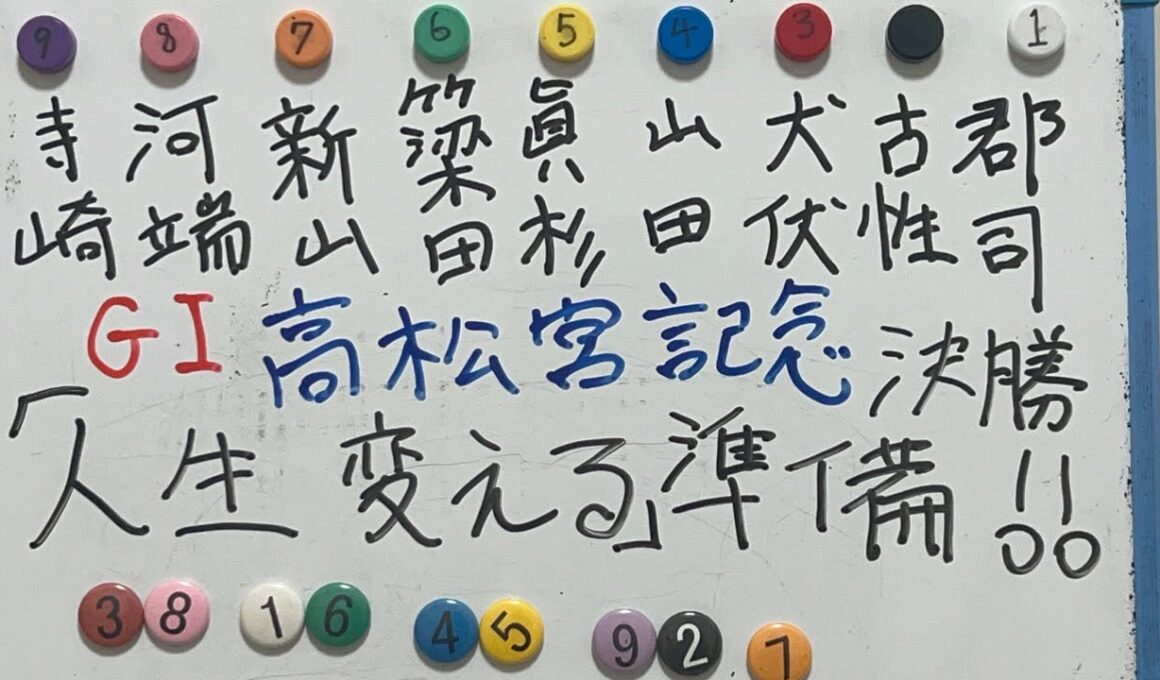 9 8 7 6 5 4 3 1
寺崎 河端 新山 簗田 眞杉 山田 犬伏 古性 郡司
GI 高松宮記念 決勝
「人生 変える」準備!!
3 8 1 6 4 5 9 2 7